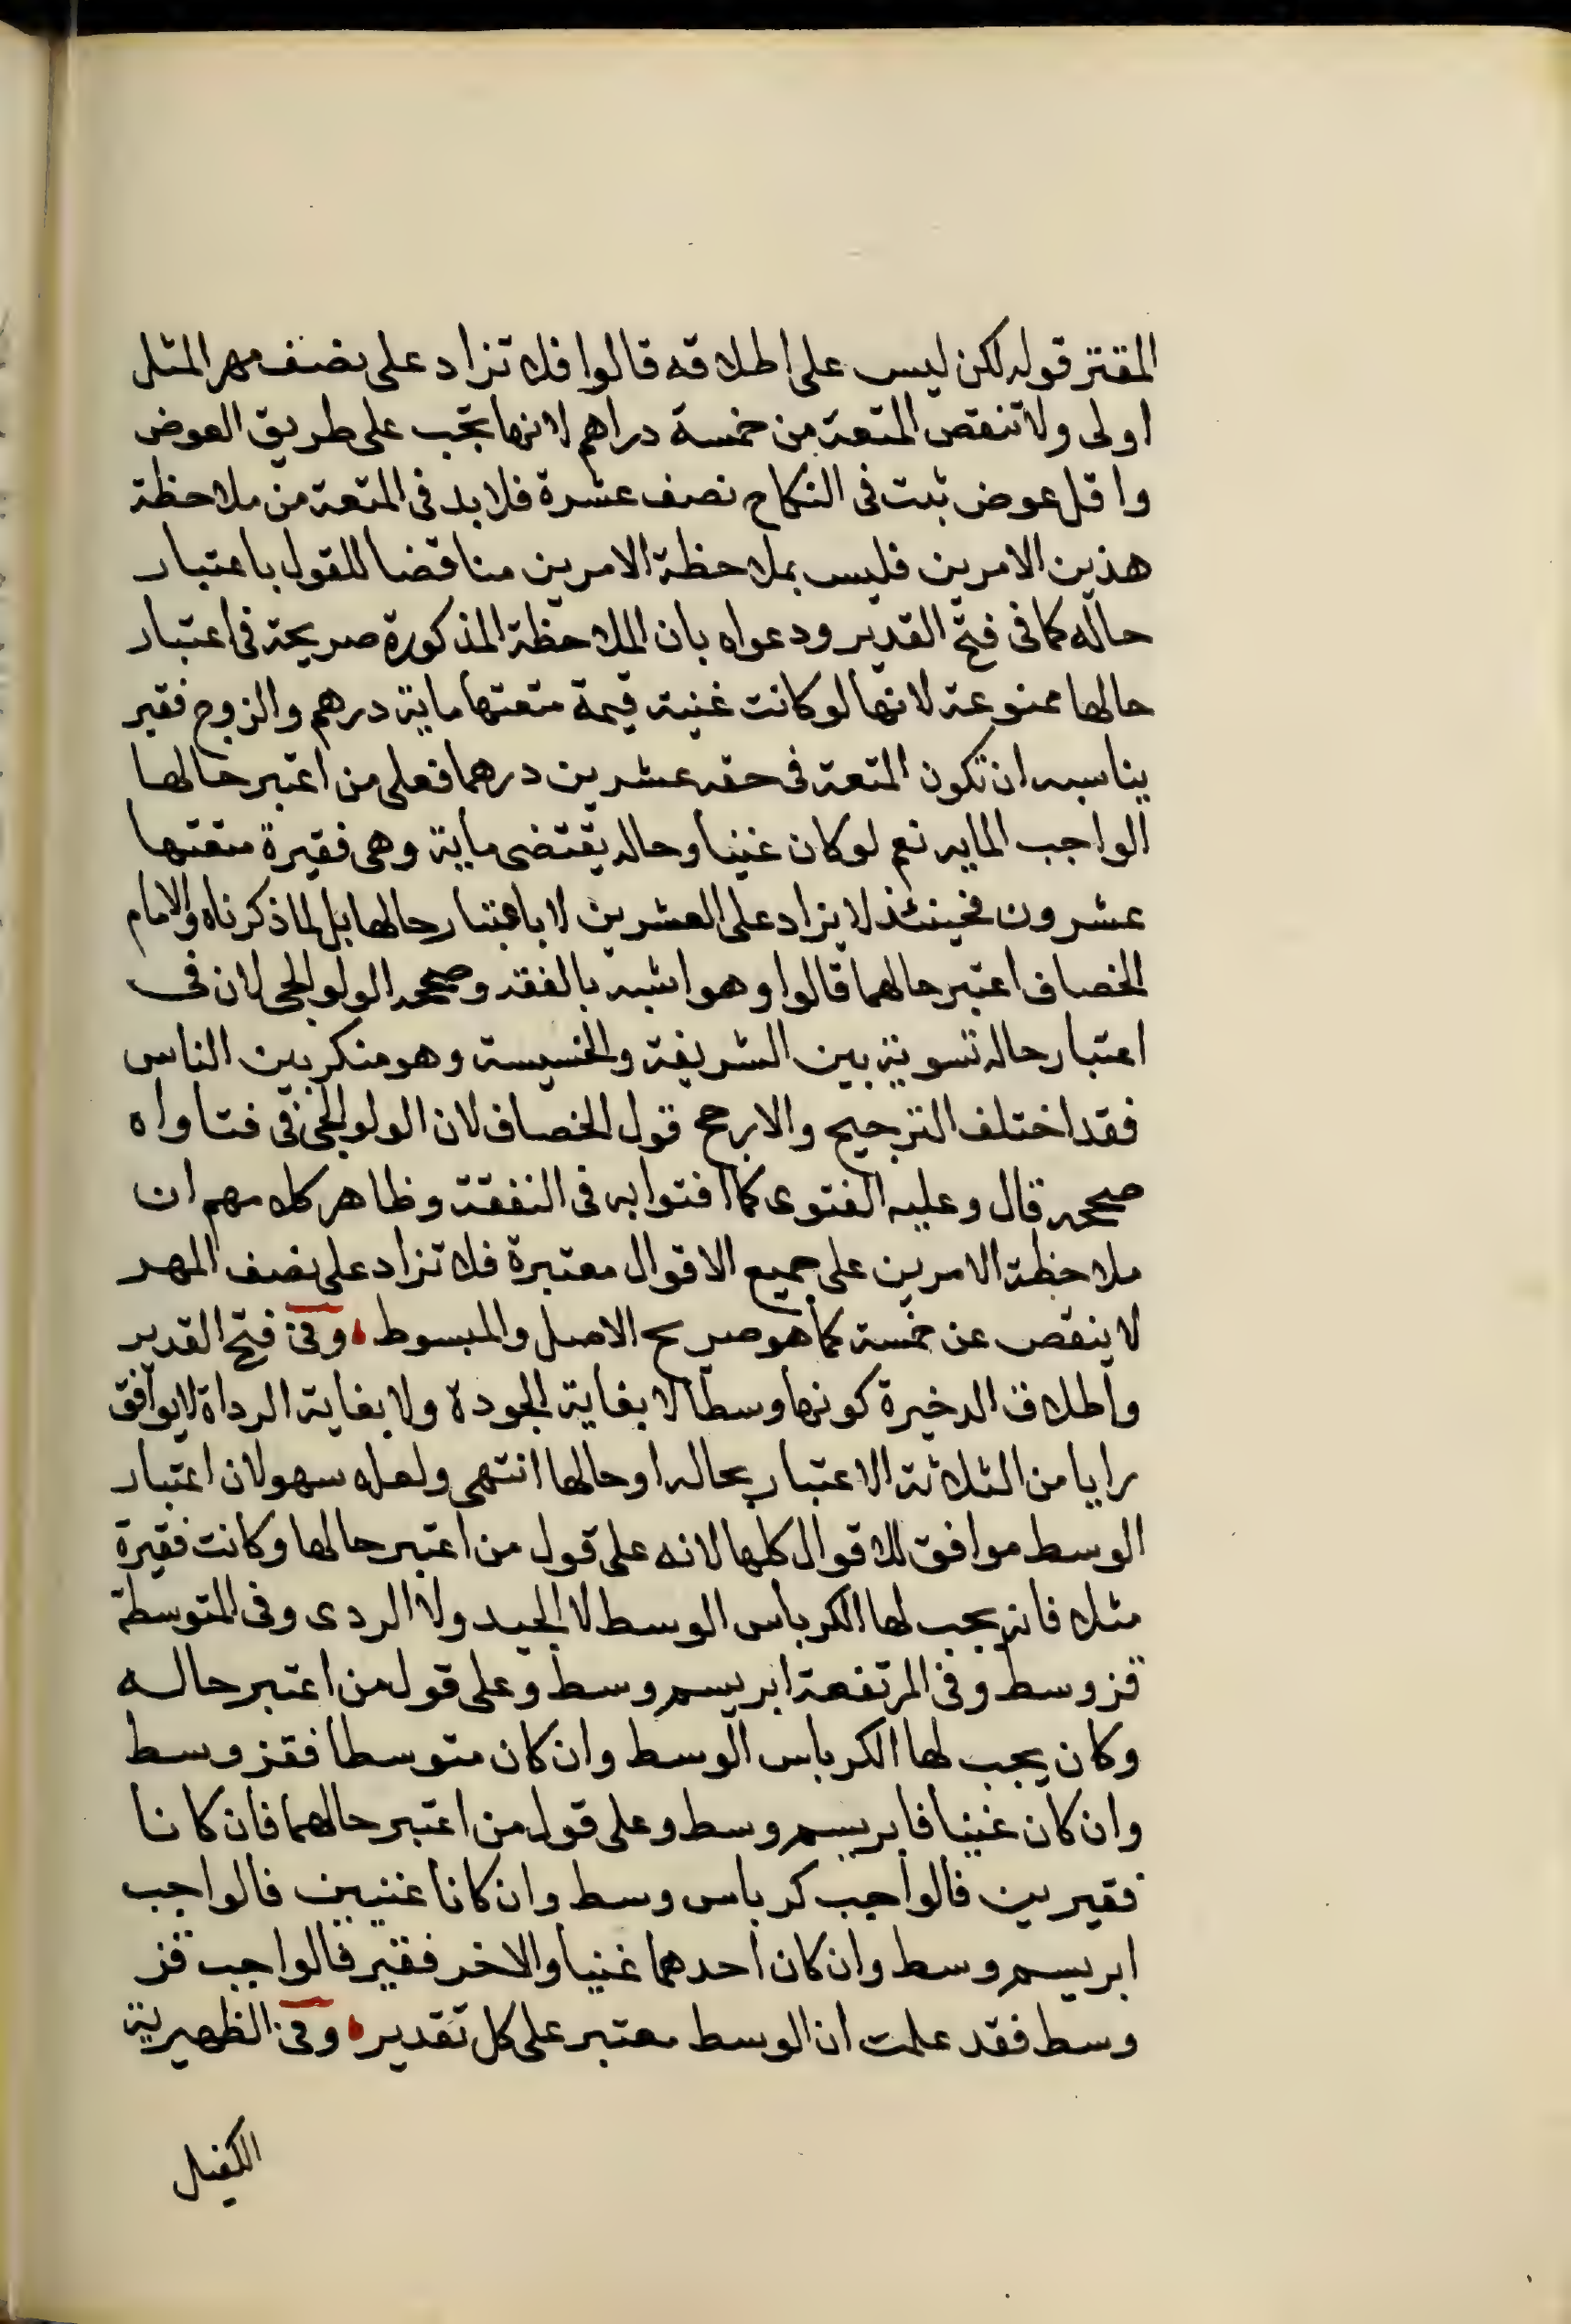 المقتر قوله لكن ليس على اطلاقه قالوا فلا تزاد على نصف مهر المثل
اولى ولا تنقص المتعة من خمسة دراهم لانها تجب على طريق العوض
واقل عوض ثبت فى النكاح نصف عشرة فلا بد فى المتعة من ملاحظة
هذين الامرين فليس بملاحظة الامرين مناقضا للقول باعتبار
حاله كما فى فتح القدير ودعواه بان الملاحظة المذكورة صريحة فى اعتبار
حالها ممنوعة لانها لو كانت غنية قيمة متعتها ماية درهم والزوج فقير
يناسبه ان تكون المتعة فى حقه عشرين درهما فعلى من اعتبر حالها
الواجب المايه نعم لو كان غنيا وحاله يقتضى ماية وهى فقيرة متعتها
عشرون فحينئذ لا يزاد على العشرين لا باعتبار حالها بل لما ذكرناه والامام
الخصاف اعتبر حالهما قالوا وهو اشبه بالفقه وصححه الولوالجى لان فى
اعتبار حاله تسوية بين الشريفة والخسيسة وهو منكر بين الناس
فقد اختلف الترجيح والارجح قول الخصاف لان الولوالجى فى فتاواه
صححه قال وعليه الفتوى كما افتوا به فى النفقة وظاهر كلامهم ان
ملاحظة الامرين على جميع الاقوال معتبرة فلا تزاد على نصف المهر
لا ينقص عن خمسة كما هو صريح الاصل والمبسوط وفى فتح القدير
واطلاق الدخيرة كونها وسطا لا بغاية الجودة ولا بغاية الرداة لا يوافق
رايا من الثلاثة الاعتبار بحاله او حالها انتهى ولعله سهو لان اعتبار
الوسط موافق للاقوال كلها لانه على قول من اعتبر حالها وكانت فقيرة
مثلا فانه يجب لها الكرباس الوسط لا الجيد ولا الردى وفى المتوسطة
قز وسط وفى المرتفعة ابريسم وسط وعلى قول من اعتبر حاله
وكان يجب لها الكرباس الوسط وان كان متوسطا فقز وسط
وان كان غنيا فابريسم وسط وعلى قول من اعتبر حالهما فان كانا
فقيرين فالواجب كرباس وسط وان كانا غنيين فالواجب
ابريسم وسط وان كان احدهما غنيا والاخر فقير فالواجب قز
وسط فقد علمت ان الوسط معتبر على كل تقدير وفى الظهيرية
الكفيل